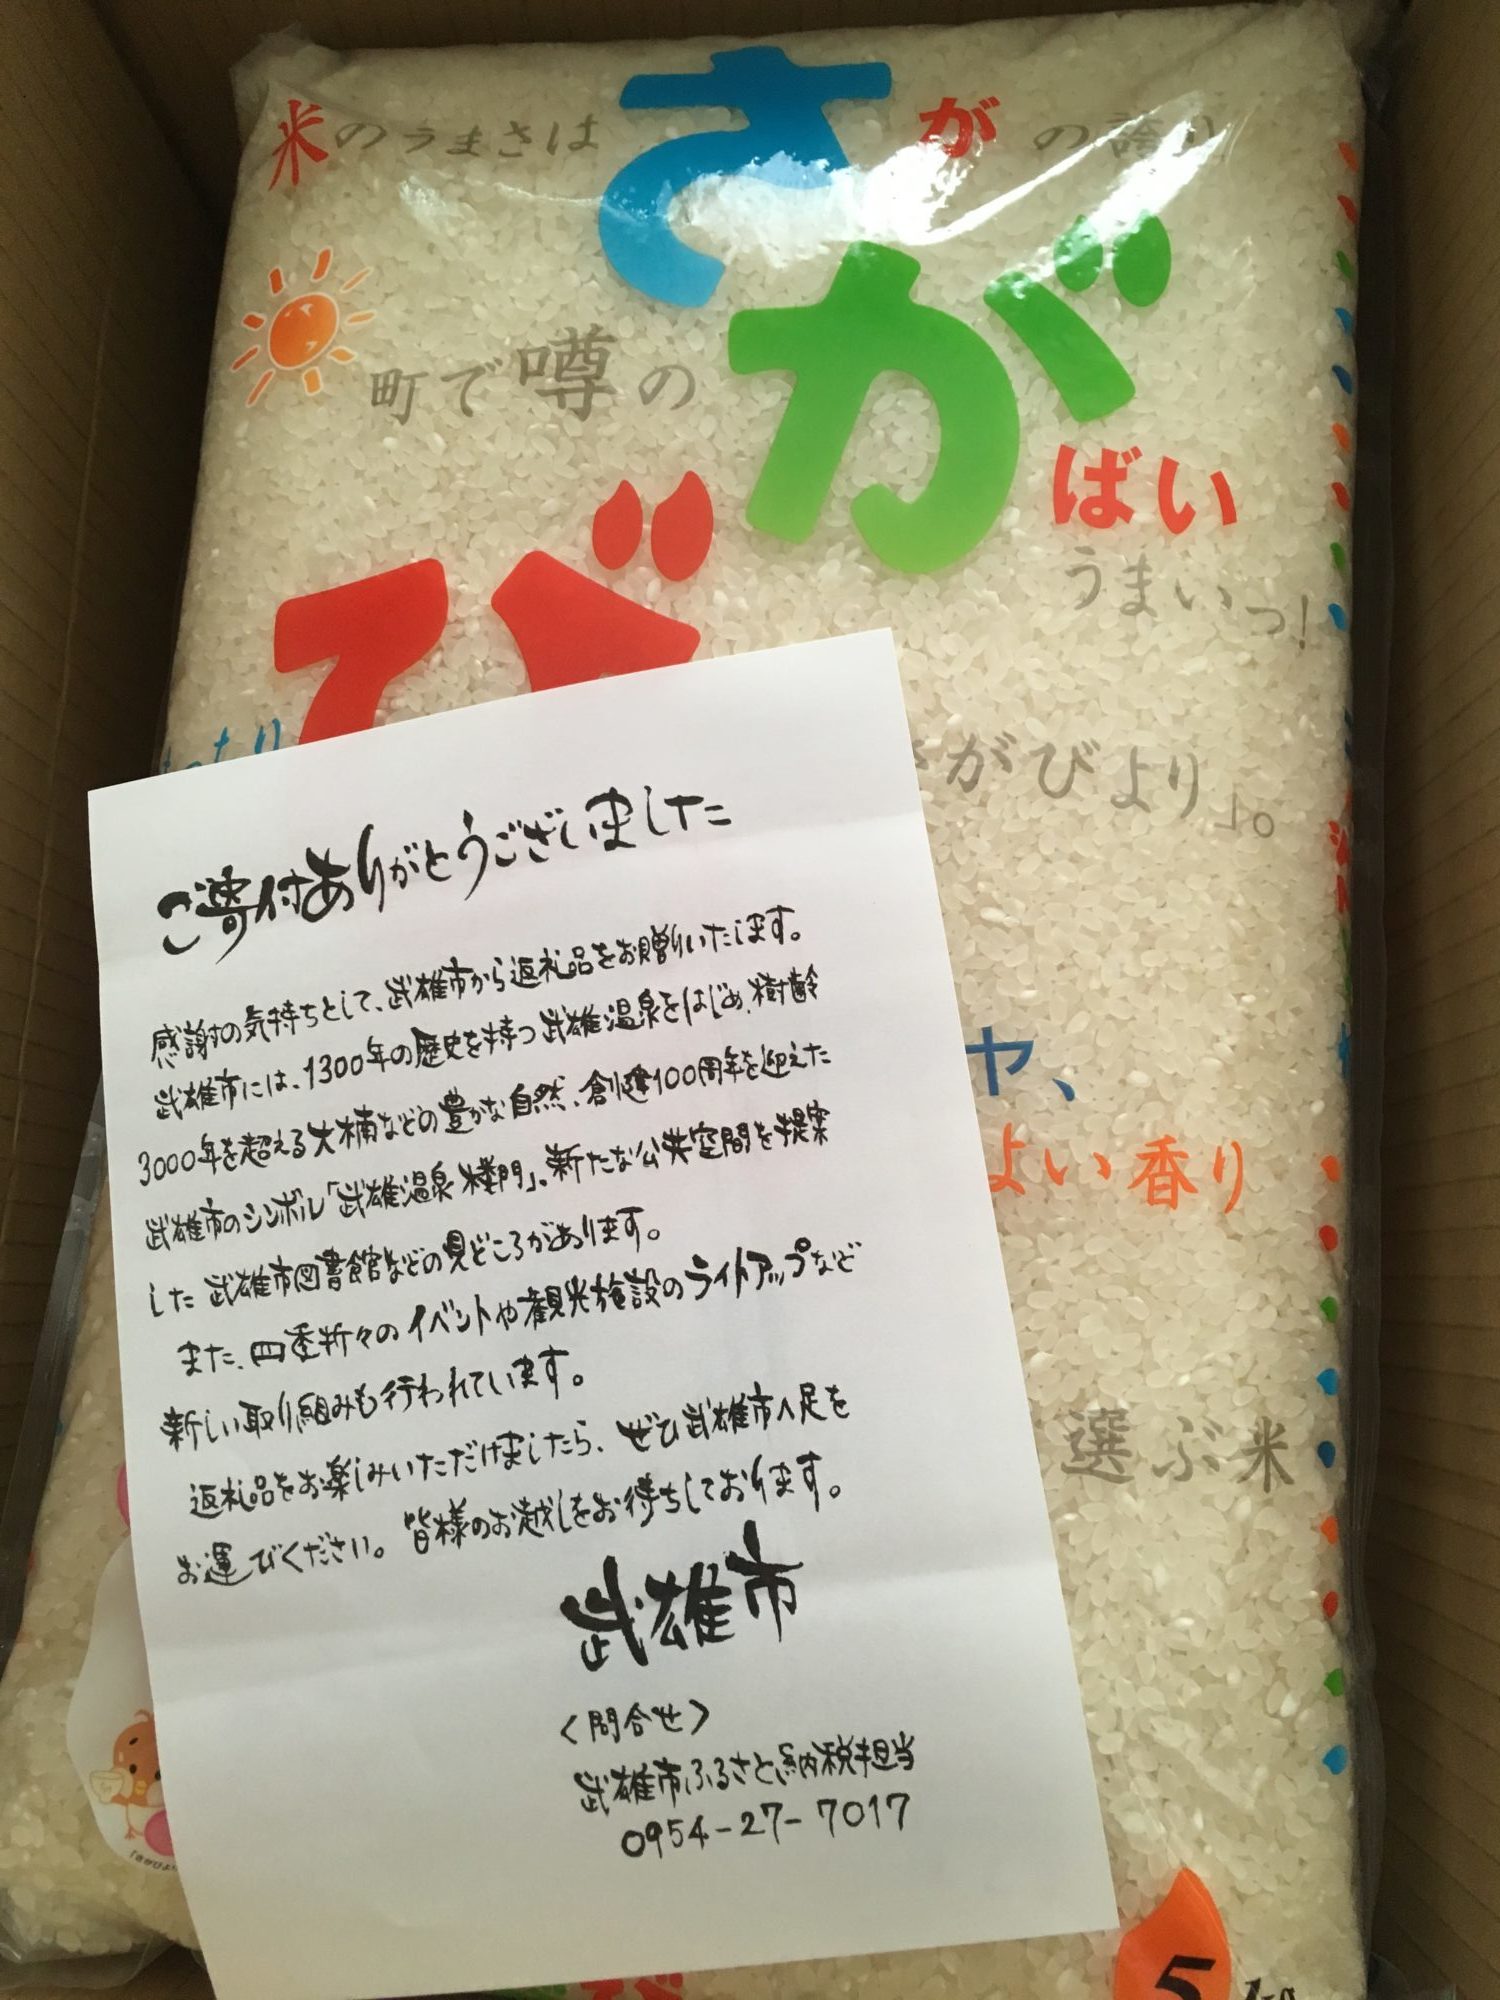 米のうまさは
さ
がの誇り
が
町で噂の
ばい
うまいっ!
び
がびより」。
ご寄付ありがとうございました
感謝の気持ちとして、武雄市から返礼品をお贈りいたします。
武雄市には、1300年の歴史を持つ武雄温泉をはじめ、樹齢
3000年を超える大楠などの豊かな自然、創建100周年を迎えた
武雄市のシンボル「武雄温泉 楼門」、新たな公共空間を提案
した 武雄市図書館などの見どころがあります。
また、四季折々のイベントや観光施設のライトアップなど
新しい取り組みも行われています。
返礼品をお楽しみいただけましたら、ぜひ武雄市へ足を
お運びください。皆様のお越しをお待ちしております。
武雄市
〈問合せ〉
武雄市ふるさと納税担当
0954-27-7017
ヤ、
よい香り
選ぶ米
5kg